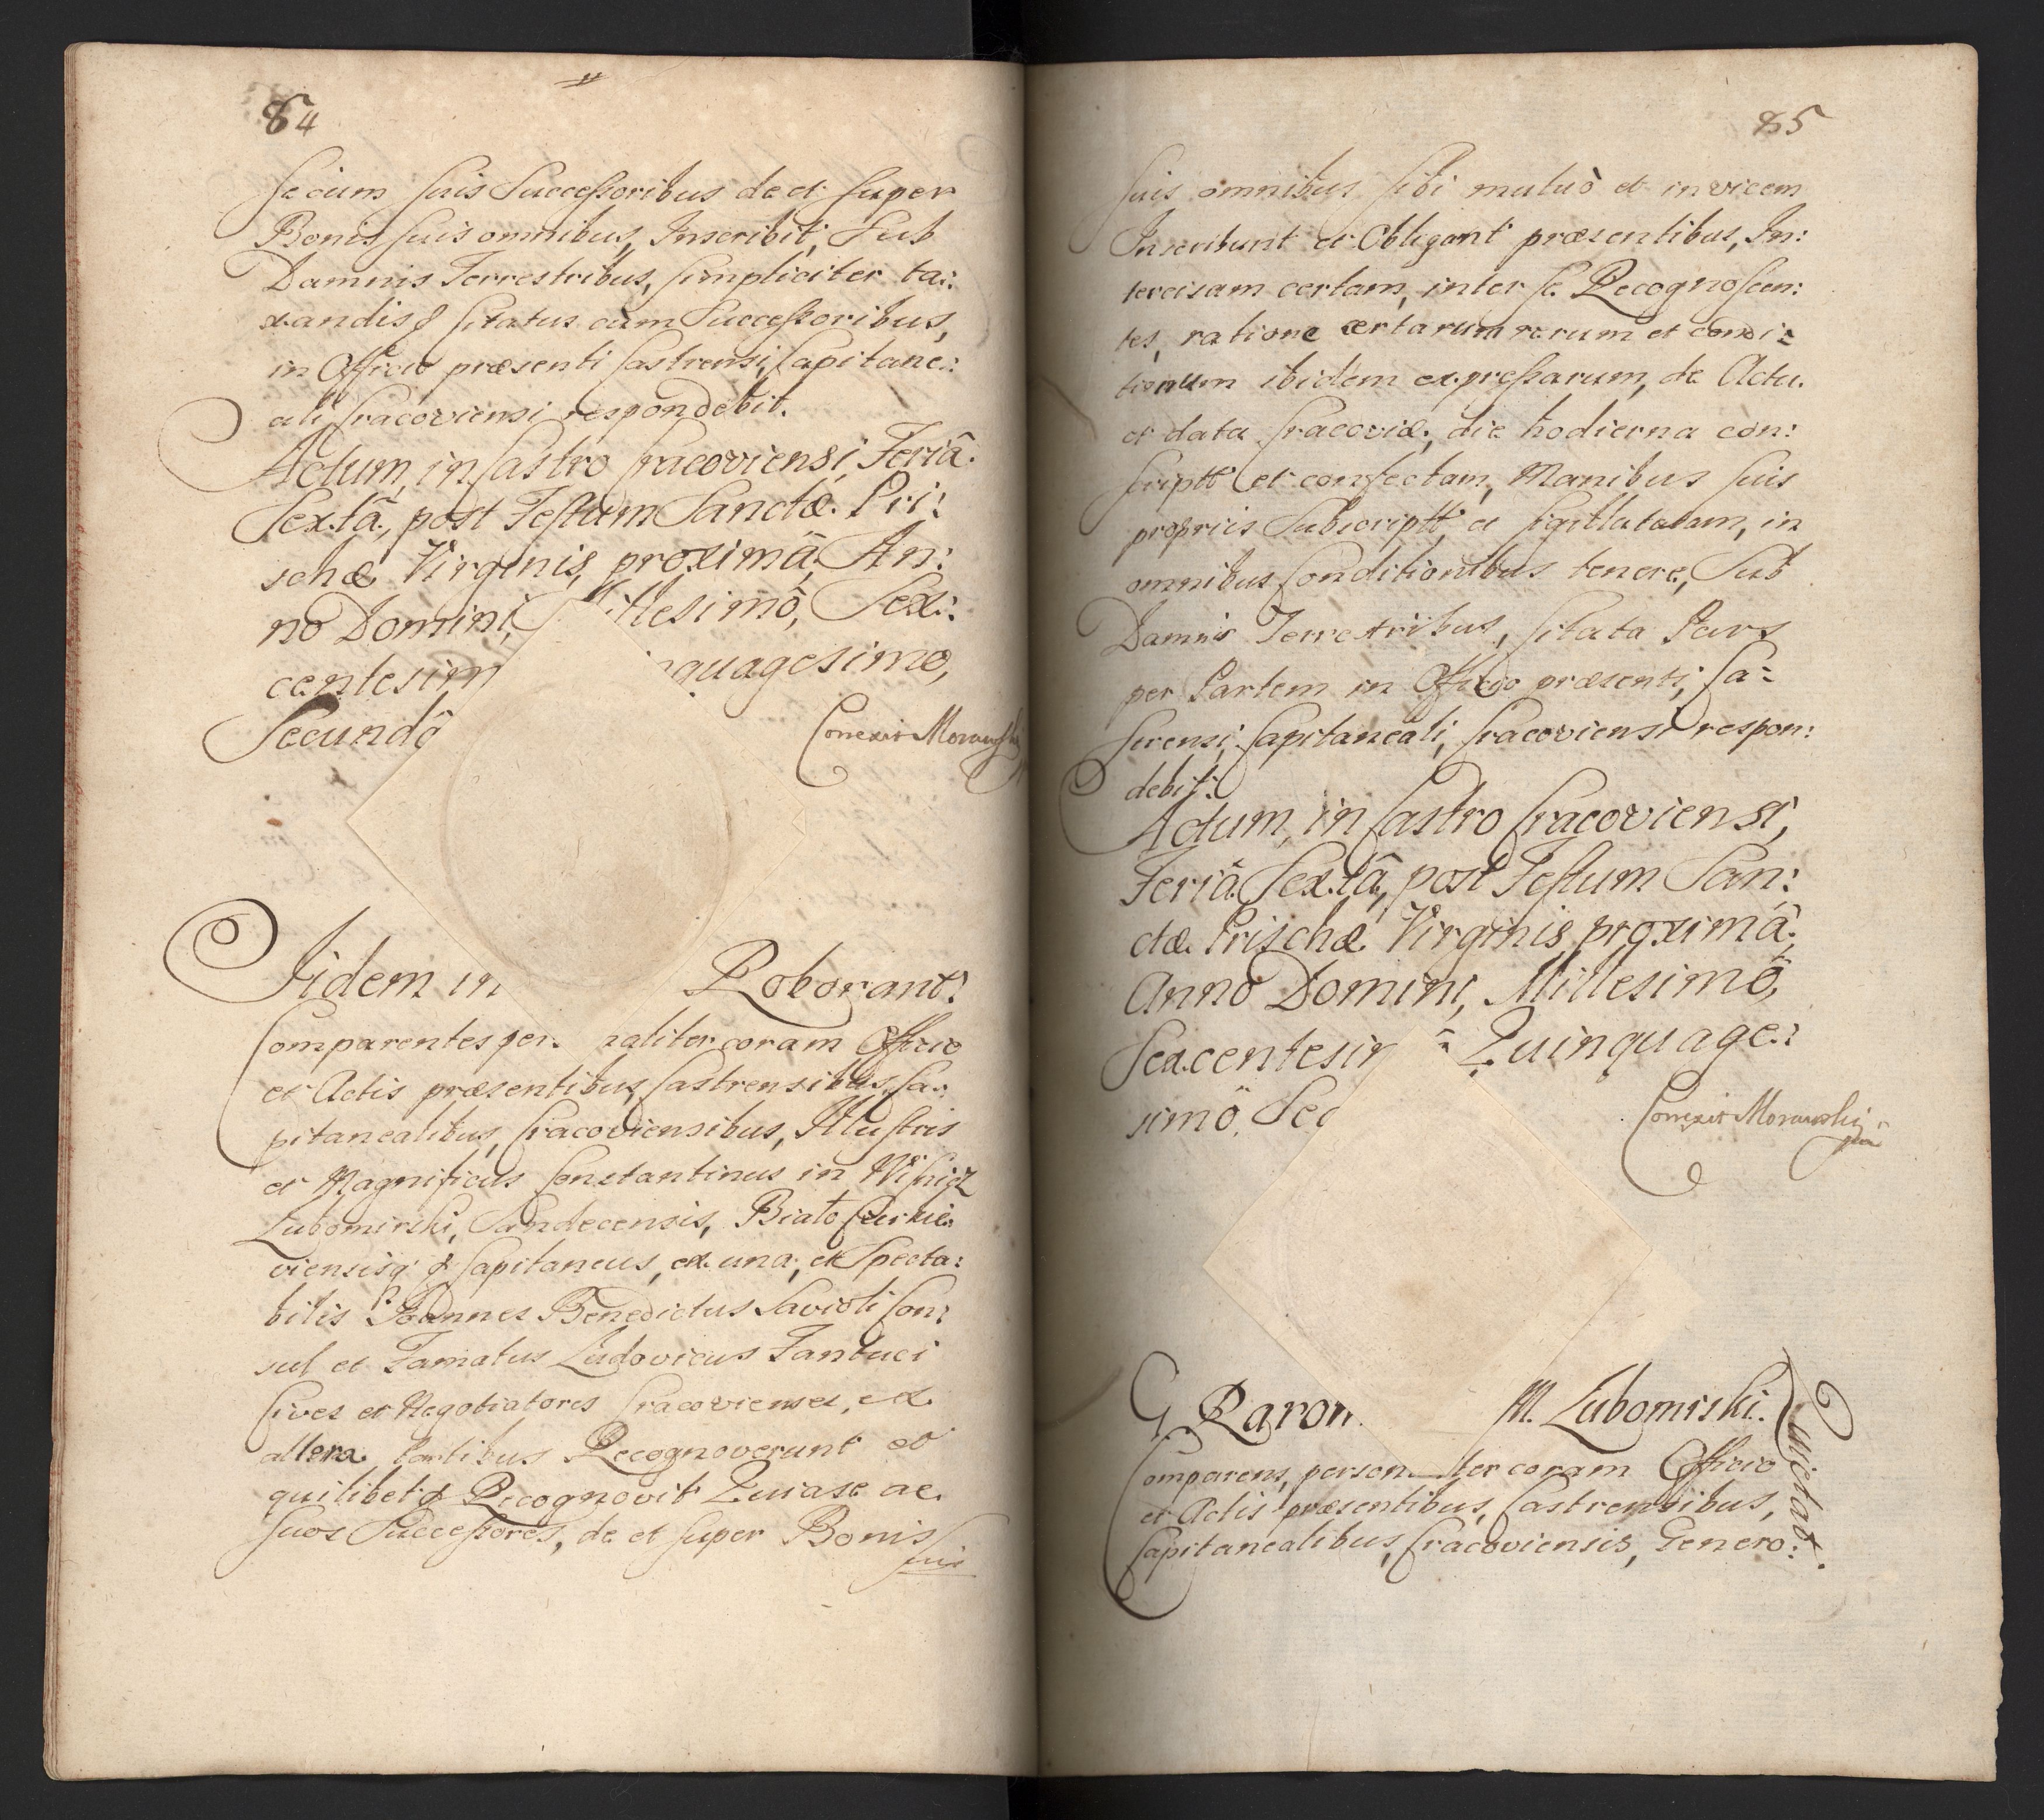 84
se cum suis Successoribus de et super
Bonis suis omnibus, Inscribit, Sub
Damnis Terrestribus, simpliciter ta:
xandis, Citatus cum Successoribus,
in Officio præsenti Castrensi, Capitane:
ali Cracoviensi respondebit.
Actum, in Castro Cracoviensi, Feriâ
Sextâ, post Festum Sanctæ Pri:
schæ Virginis, proximâ, An:
no Domini, llesimô, Sex:
centesim nquagesimo,
Secundô
Conexit Morawski
Iidem in Roborant:
Comparentes per naliter coram Officio
et Actis præsentibus, Castrensibus, Ca:
pitanealibus, Cracoviensibus, Illustris
et Magnificus Constantinus in Wisnicz
Lubomirski, Sandecensis, Biało Cerkie:
viensisq Capitaneus, ex una, et Specta:
bilis Joannes Benedictus Savioli Con:
sul et Famatus Ludovicus Fantuci
Cives et Negotiatores Cracovienses, ex
altera Partibus Recognoverunt et
quilibet Recognovit Quia se ac
suos Successores, de et super Bonis
suis
85
suis omnibus sibi mutuò et invicem
Inscribunt et Obligant præsentibus, In:
tercisam certam, inter se Recognoscen:
tes, ratione certarum rerum et condi:
tionum ibidem expressarum, de Actu
et data Cracoviæ, die hodierna con:
script et confectam, Manibus suis
propriis Subscript et sigillatam, in
omnibus Conditionibus tenere, Sub
Damnis Terrestribus, Citata Pars
per Partem in Officio præsenti, Ca:
strensi, Capitaneali, Cracoviensi respon:
debit.
Actum, in Castro Cracoviensi,
Feriâ Sextâ, post Festum San:
ctæ Prischæ Virginis proximâ,
Anno Domini, Millesimô,
Sexcentesim Quinquage:
simô, Sec
Conexit Morawski
G. Baron M. Lubomirski. Quietat.
Comparens, person ter coram Officio
et Actis præsentibus, Castrensibus,
Capitanealibus, Cracoviensis, Genero: